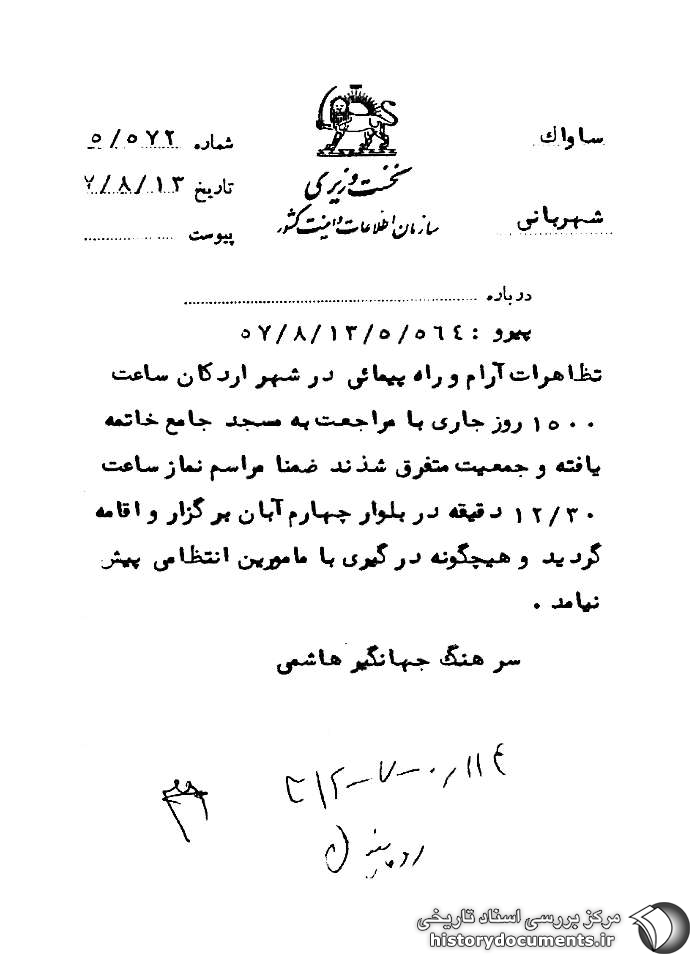 ساواك
شماره ۵/۵۷۲
نخست وزیری
تاریخ ۷/۸/۱۳
سازمان اطلاعات و امنیت کشور
شهربانی
پیوست
درباره
پیرو : ۵۷/۸/۱۳/۵/۵۶۴
تظاهرات آرام و راه پیمائی در شهر اردکان ساعت
۱۵۰۰ روز جاری با مراجعت به مسجد جامع خاتمه
یافته و جمعیت متفرق شدند ضمنا مراسم نماز ساعت
۱۲/۳۰ دقیقه در بلوار چهارم آبان برگزار و اقامه
گردید و هیچگونه درگیری با مامورین انتظامی پیش
نیامد .
سرهنگ جهانگیر هاشمی
مرکز بررسی اسناد تاریخی
historydocuments.ir